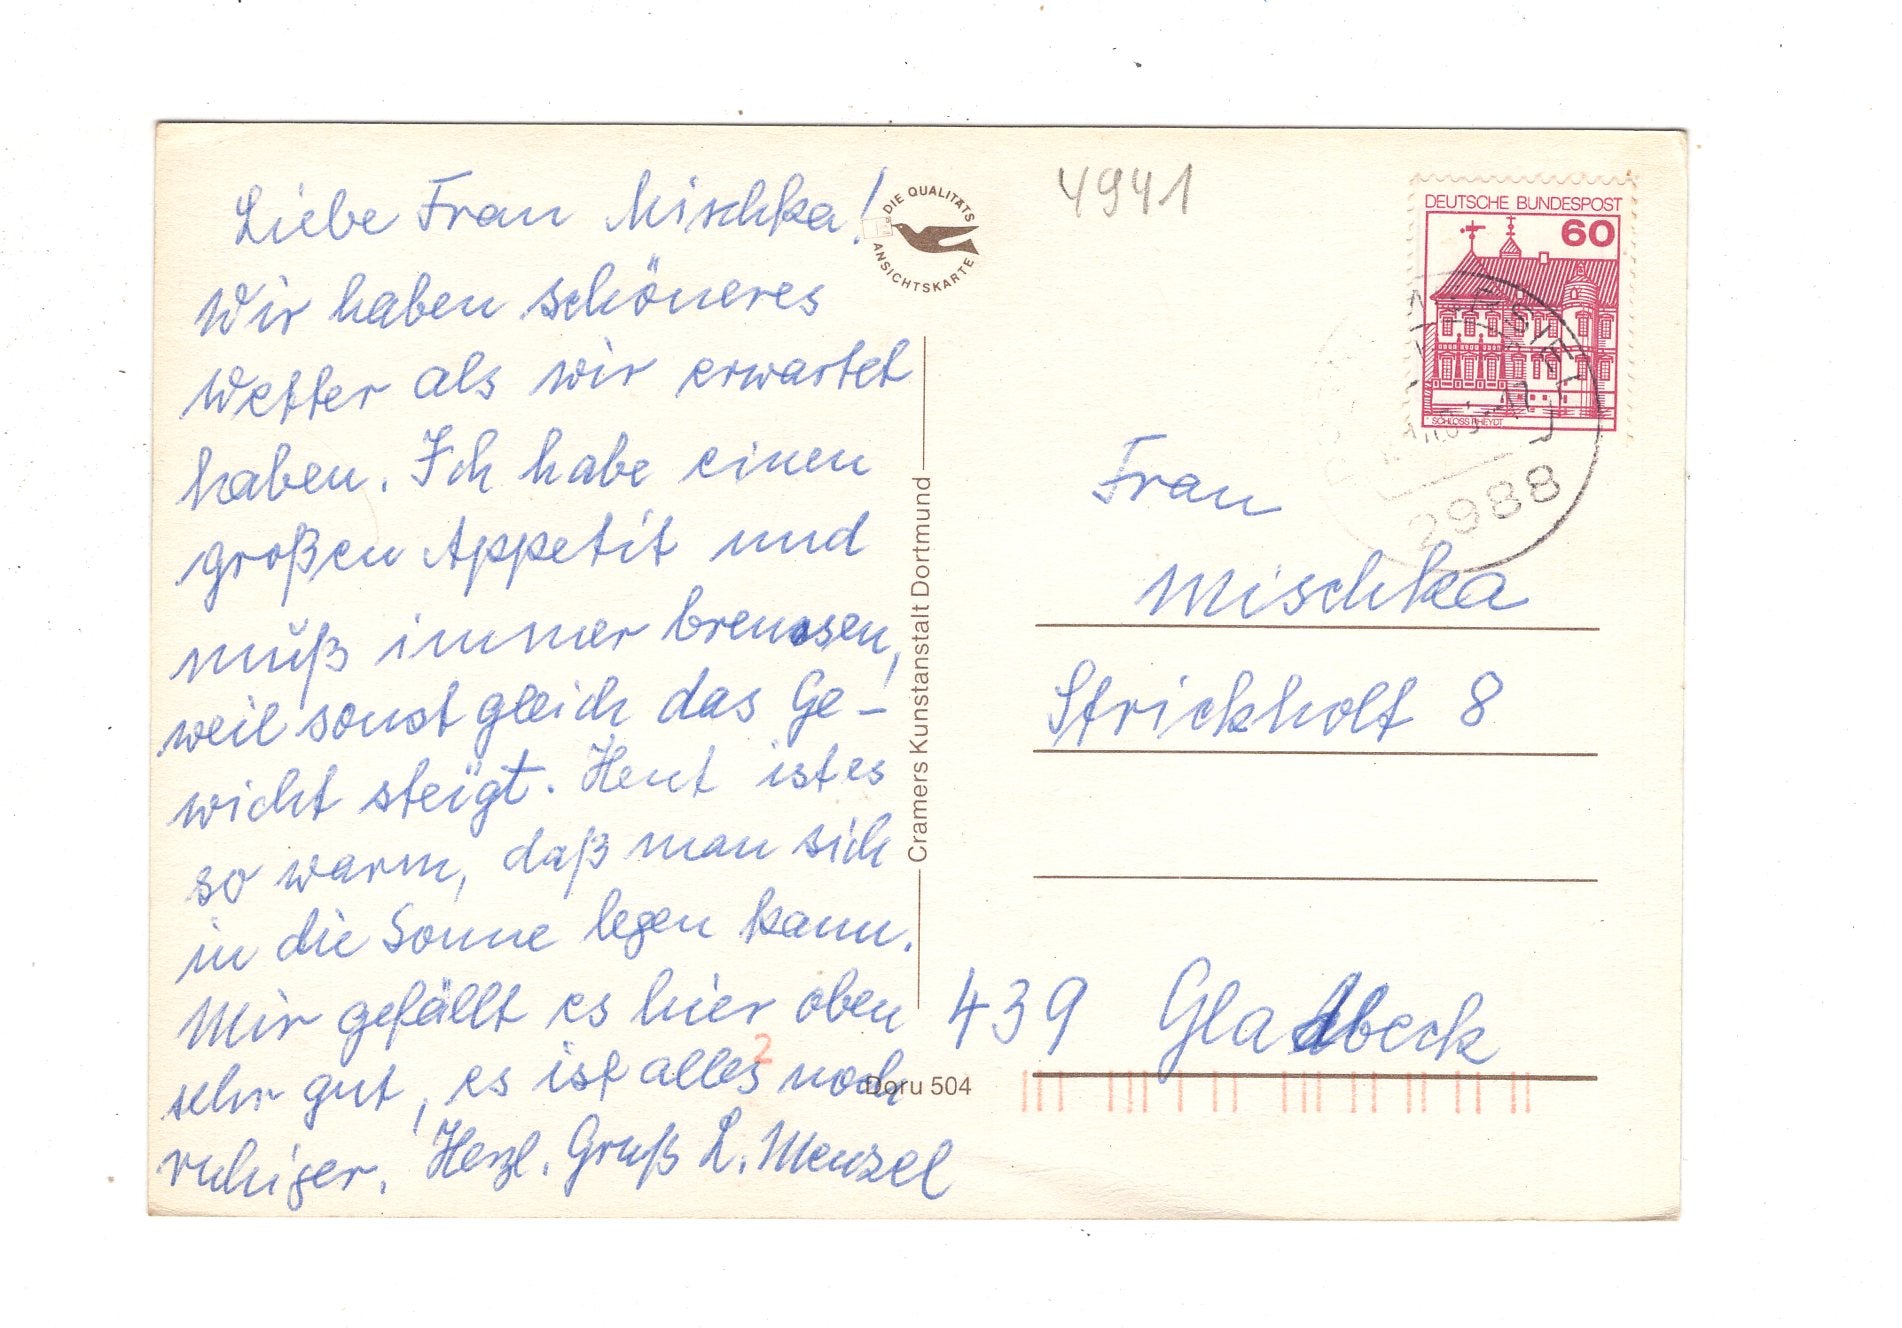 Liebe Frau Mischka!
Wir haben schöneres
Wetter als wir erwartet
haben. Ich habe einen
großen Appetit und
muß immer bremsen,
weil sonst gleich das Ge-
wicht steigt. Heut ist es
so warm, daß man sich
in die Sonne legen kann.
Mir gefällt es hier oben
sehr gut, es ist alles noch
ruhiger. Herzl. Gruß L. Menzel
DIE QUALITÄTS
ANSICHTSKARTE
Cramers Kunstanstalt Dortmund
Doru 504
2
4941
DEUTSCHE BUNDESPOST
60
SCHLOSS RHEYDT
2988
Frau
Mischka
Strickholt 8
439 Gladbeck